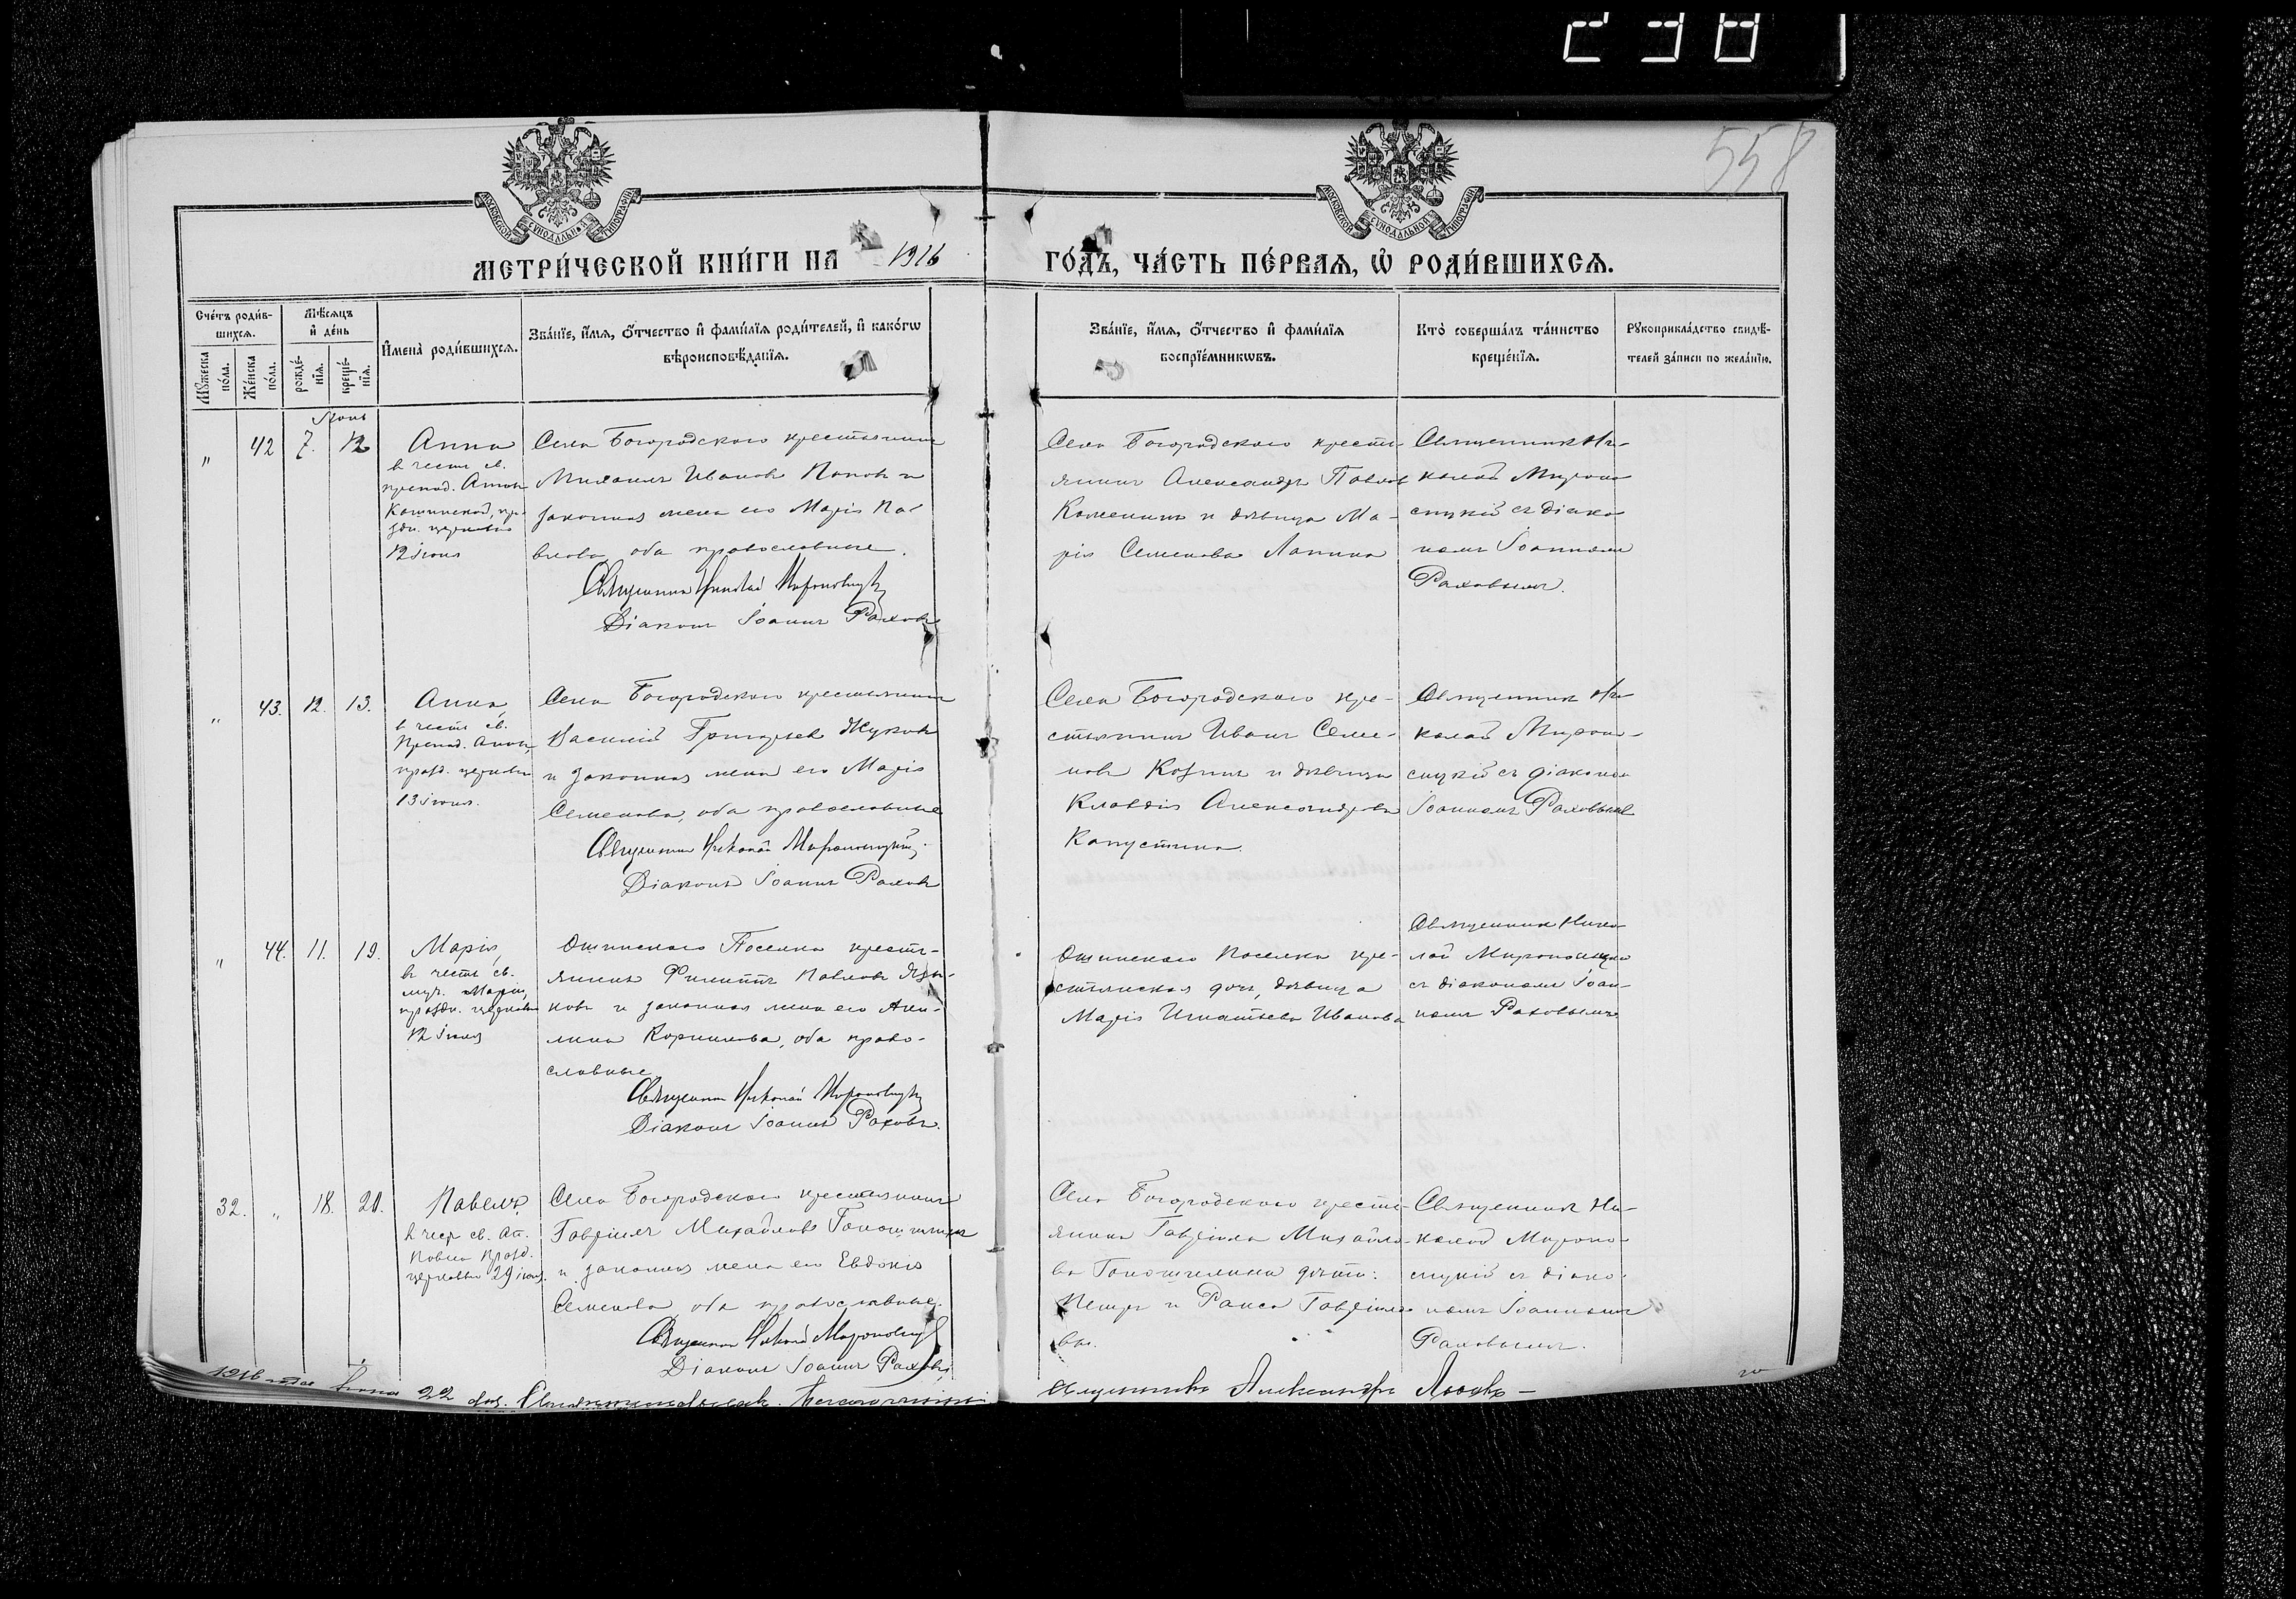 238
558
МОСКОВСКОЙ СѴНОДАЛЬНОЙ ТИПОГРАФІИ
МОСКОВСКОЙ СѴНОДАЛЬНОЙ ТИПОГРАФІИ
МЕТРИ́ЧЕСКОЙ КНИ́ГИ НА 1916 ГО́ДЪ, ЧА́СТЬ ПЕ́РВАѦ, Ѡ РОДИ́ВШИХСѦ.
Сче́тъ роди́в-
шихсѧ.
Мꙋ́жеска
по́ла.
Же́нска
по́ла.
Мѣ́сѧцъ
и҆ де́нь
рожде́-
нїѧ.
креще́-
нїѧ.
И҆мена̀ роди́вшихсѧ.
Зва́нїе, и҆́мѧ, ѻ҆́тчество и҆ фами́лїѧ роди́телей, и҆ како́гѡ
вѣроисповѣ́данїѧ.
Зва́нїе, и҆́мѧ, ѻ҆́тчество и҆ фами́лїѧ
воспрїе́мникѡвъ.
Кто̀ соверша́лъ та́инство
креще́нїѧ.
Рꙋкоприкла́дство свидѣ́-
телей за́писи по жела́нїю.
Іюнь
" 42 7. 12
Анна
в честь св.
препод. Анны
Кашинской, пр-
здн. церковью
12 іюня
Села Богородскаго крестьянинъ
Михаилъ Ивановъ Поповъ и
законная жена его Марія Па-
влова, оба православные.
Священникъ Николай Мироносицкій
Діаконъ Іоаннъ Раховъ
Села Богородскаго кресть-
янинъ Александръ Павлов
Каменинъ и дѣвица Ма-
рія Семенова Лапина
Священникъ Ни-
колай Мироно-
сицкій съ діако-
номъ Іоанномъ
Раховымъ.
" 43. 12. 13.
Анна,
в честь св.
Препод. Анны,
празд. церковью
13 іюня.
Села Богородскаго крестьянинъ
Василій Григорьев Жуковъ
и законная жена его Марія
Семенова, оба православные
Священникъ Николай Мироносицкій.
Діаконъ Іоаннъ Раховъ
Села Богородскаго кре-
стьянинъ Иванъ Семе-
новъ Козинъ и дѣвица
Клавдія Александрова
Капустина.
Священникъ Ни-
колай Мироно-
сицкій съ діакономъ
Іоанномъ Раховымъ
" 44. 11. 19.
Марія,
въ честь св.
муч. Маріи,
праздн. церковью
12 іюня
Ошинскаго Поселка кресть-
янинъ Филиппъ Павловъ Язы-
ковъ и законная жена его Аки-
лина Корнилова, оба право-
славные
Священникъ Николай Мироносицкій
Діаконъ Іоаннъ Раховъ.
Ошинскаго поселка кре-
стьянская дочь, дѣвица
Марія Игнатьева Иванова
Священникъ Нико-
лай Мироносицкій
съ діакономъ Іоан-
номъ Раховымъ
32. " 18. 20.
Павелъ,
в чест св. Ап.
Павла празд.
церковью 29 іюня.
Села Богородскаго крестьянинъ
Гавріилъ Михайловъ
и законная жена его Евдокія
Семенова, оба православные.
Священникъ Николай Мироносицкій
Діаконъ Іоаннъ Раховъ
Села Богородскаго кресть-
янина Гавріила Михайло-
ва дѣти:
Петръ и Раиса Гавріило-
вы.
Священникъ Ни-
колай Мироно-
сицкій съ діако-
номъ Іоанномъ
Раховымъ.
1916 года Іюня 22 дня. Священникъ Александръ